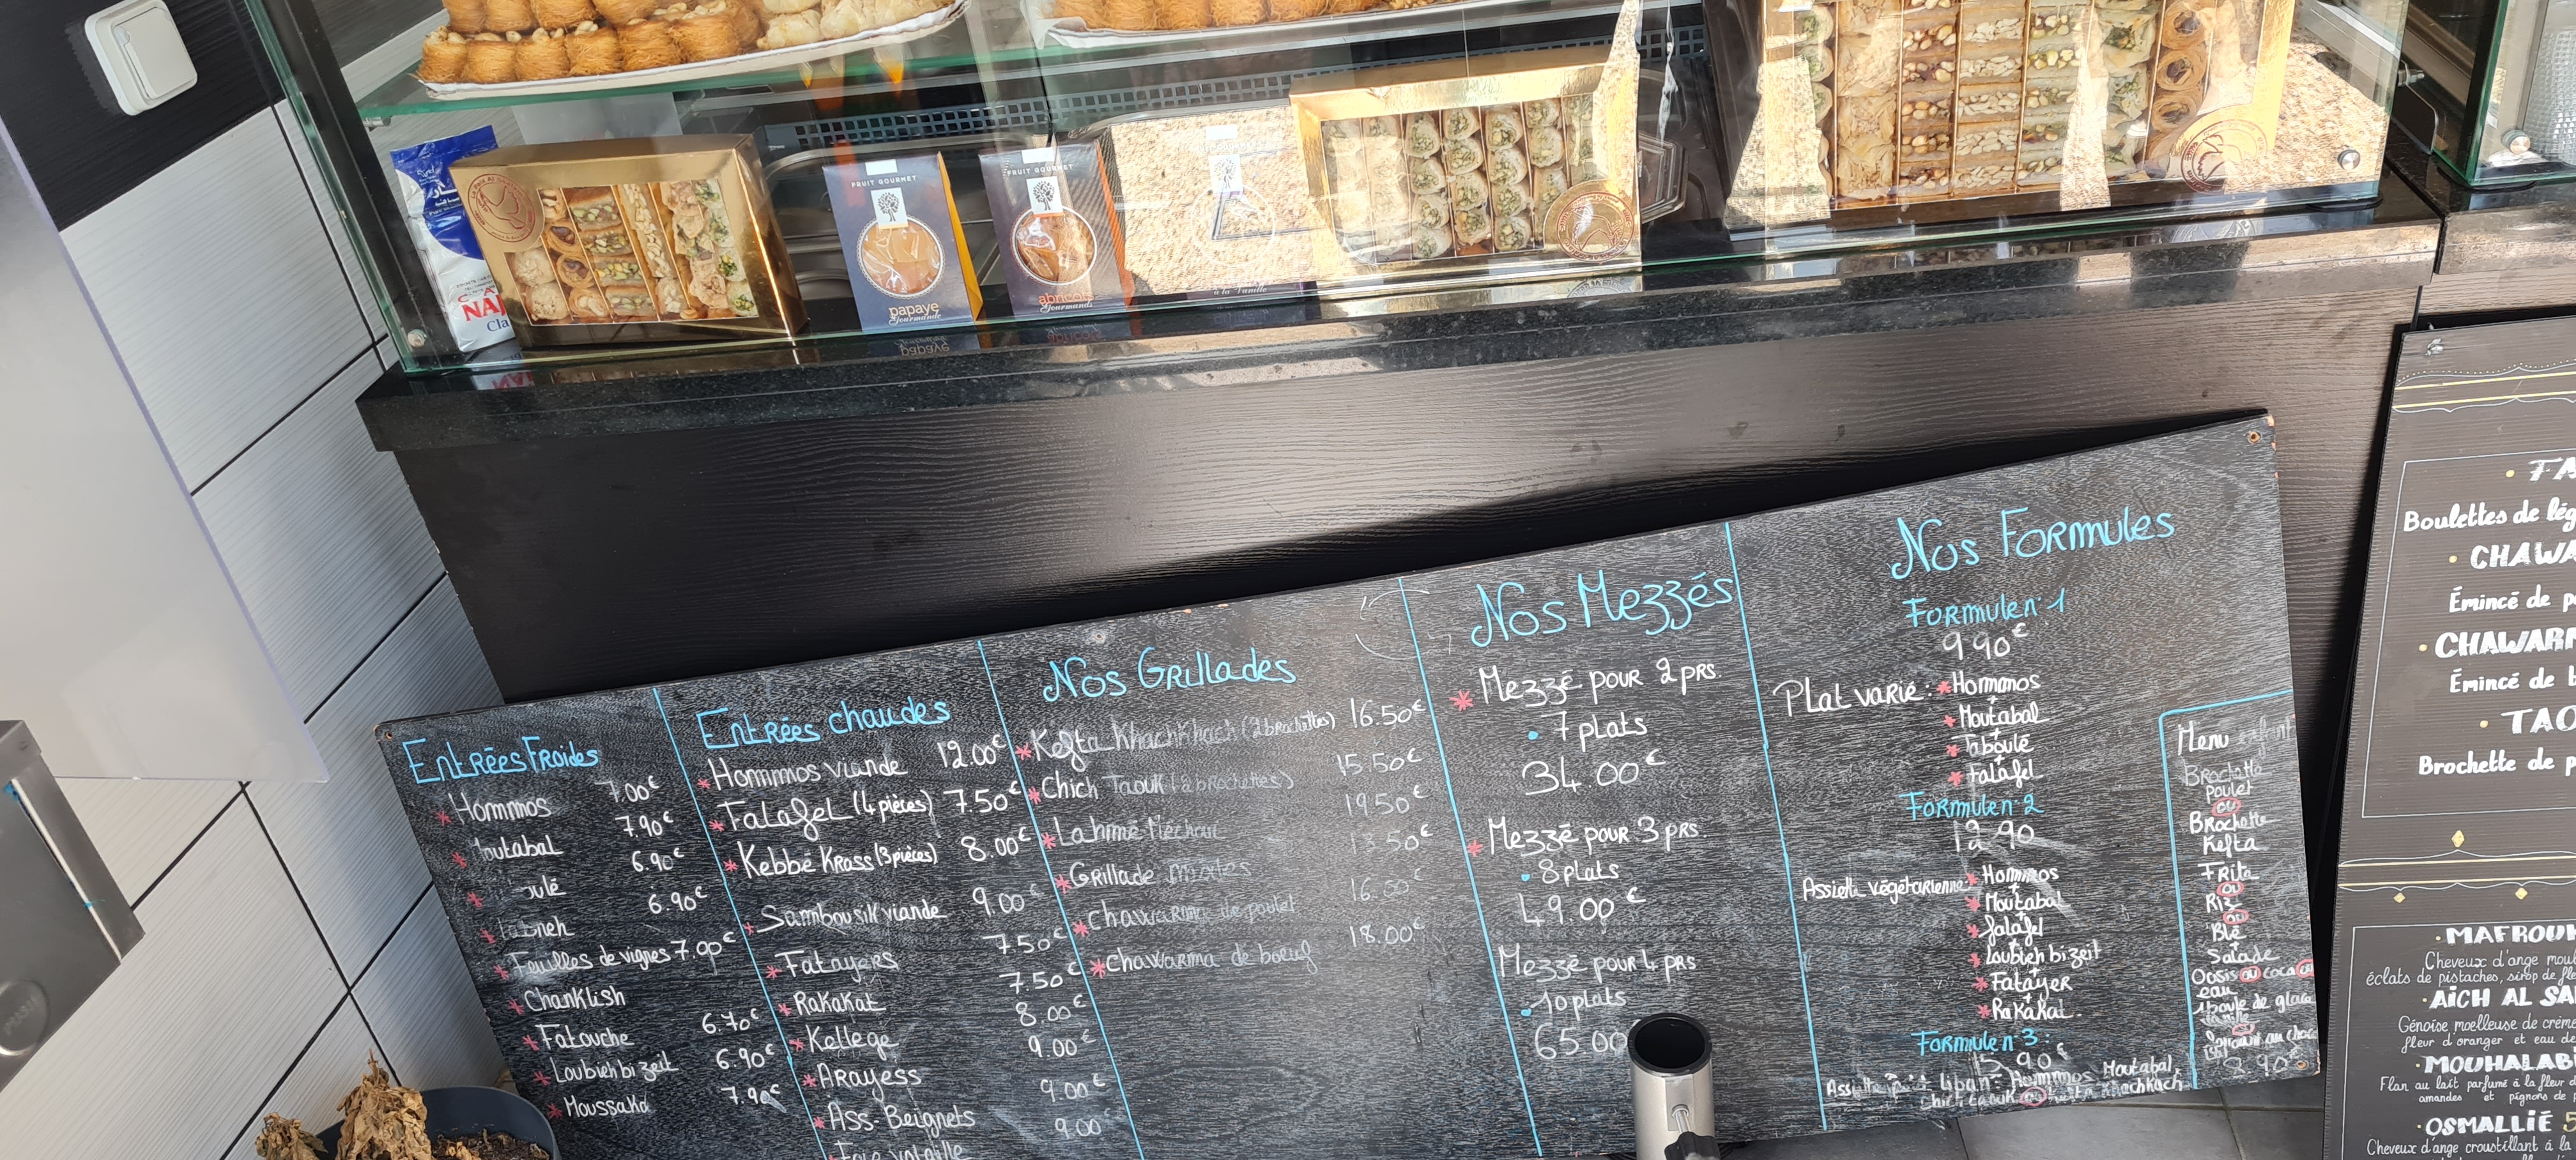 FRUIT GOURMET
papaye
Gourmande
FRUIT GOURMET
abricots
Gourmands
à la Vanille
NAJ
Cla
Entrées Froides
* Hommos 7.00€
* Moutabal 7.90€
* oulé 6.90€
* Labneh 6.90€
* Feuilles de vignes 7.90€
* Chanklish
* Fatouche 6.70€
* Loubieh bi zeit 6.90€
* Moussaka 7.90€
Entrées chaudes
* Hommos viande 12.00€
* Falafel (4 pièces) 7.50€
* Kebbé Krass (3 pièces) 8.00€
* Sambousik viande 9.00€
* Fatayers 7.50€
* Rakakat 7.50€
* Kellege 8.00€
* Arayess 9.00€
* Ass. Beignets 9.00€
* Foie volaille 9.00
Nos Grillades
* Kefta KhachKhach (2 brochettes) 16.50€
* Chich Taouk (2 brochettes) 15.50€
* Lahmé Méchoui 19.50€
* Grillade mixtes 13.50€
* chawarma de poulet 16.00€
* chawarma de boeuf 18.00€
Nos Mezzés
* Mezzé pour 2 prs.
• 7 plats
34.00€
* Mezzé pour 3 prs.
• 8 plats
49.00€
Mezzé pour 4 prs
• 10 plats
65.00
Nos Formules
Formule n°1
9.90€
Plat varié : * Hommos
+
* Moutabal
+
* Taboulé
+
* Falafel
Formule n°2
12.90
Assiette végétarienne * Hommos
+
* Moutabal
+
* falafel
+
* Loubieh bi zeit
+
* Fatayer
+
* Rakakat.
Formule n°3 :
15.90€
Liban : Hommos Moutabal,
chich taouk ou kefta Khachkhach
Menu enfant
Brochette
poulet
ou
Brochette
Kefta
+
Frite
ou
Riz
ou
Blé
+
Salade
Oasis ou coca ou
eau
1 boule de glace
8.90€
• FA
Boulettes de lég
• CHAWA
Émincé de p
• CHAWARM
Émincé de b
• TAO
Brochette de p
• MAFROUK
Cheveux d'ange mou
éclats de pistaches, sirop de fle
• AÏCH AL SA
Génoise moelleuse de crème
fleur d'oranger et eau de
• MOUHALAB
Flan au lait parfumé à la fleur d
amandes et pignons de p
• OSMALLIÉ 5
Cheveux d'ange croustillant à la